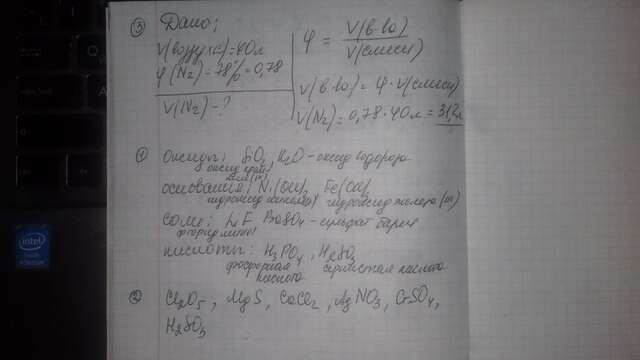 ③ Дано:
V(воздуха)=40л
φ(N₂)=78%=0,78
V(N₂)-?
φ = V(в-ва) / V(смеси)
V(в-ва)= φ·V(смеси)
V(N₂)=0,78·40л = 31,2л
① оксиды: SiO₂, H₂O - оксид водорода
оксид
основания: Ni(OH)₂, Fe(OH)₃
гидроксид гидроксид железа (III)
соли: LiF BaSO₄ - сульфат бария
фторид лития
кислоты: H₃PO₄, H₂SO₃
фосфорная сернистая кислота
кислота
② Cl₂O₅, MgS, CaCl₂, AgNO₃, CrSO₄,
H₂SO₃
intel